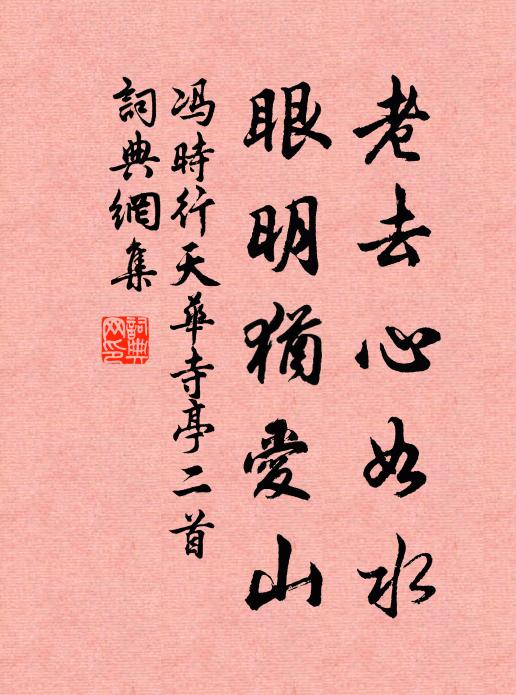 老去心如水
眼明猶愛山
冯時行天華寺亭二首
詞典網集
詞典網印